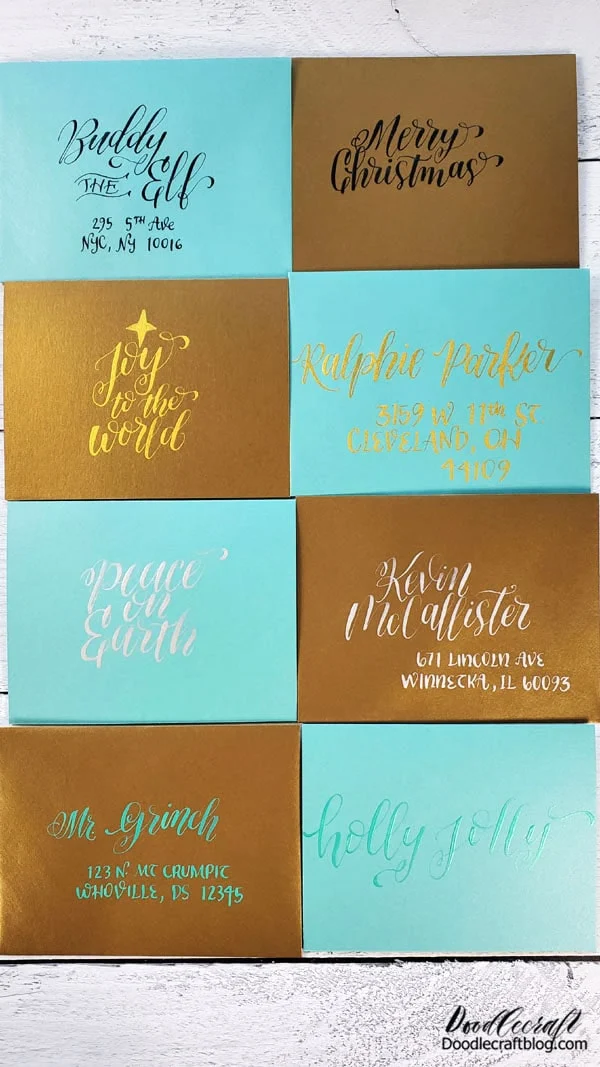 Buddy
THE Elf
295 5TH Ave
NYC, NY 10016
Merry
Christmas
Joy
to the
world
Ralphie Parker
3159 W 11th ST.
CLEVELAND, OH
44109
Peace
on
Earth
Kevin
McCallister
671 LINCOLN AVE
WINNETKA, IL 60093
Mr. Grinch
123 N. MT CRUMPIT
WHOVILLE, DS 12345
holly jolly
Doodlecraft
Doodlecraftblog.com